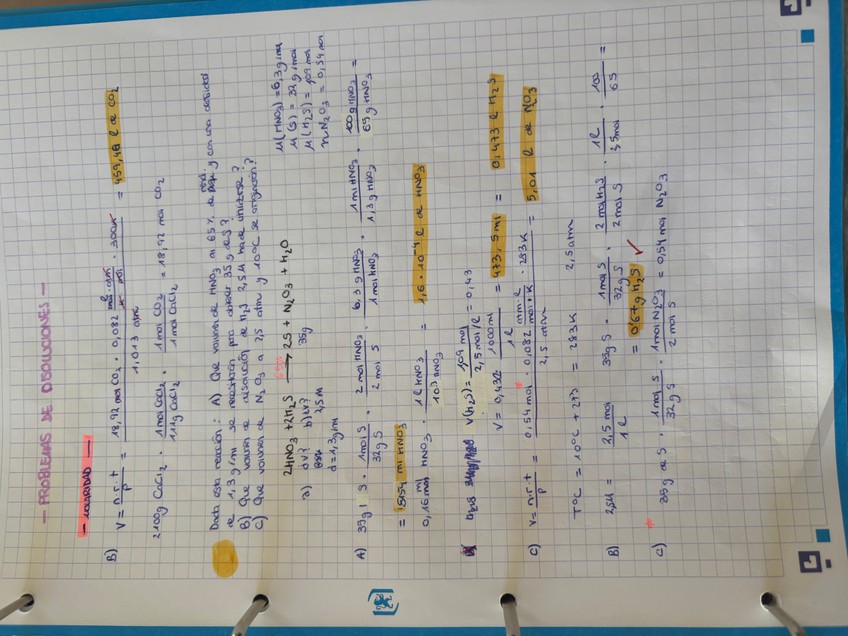 — PROBLEMAS DE DISOLUCIONES —
— MOLARIDAD —
B) V = n·r·t / p = 18,92 mol CO2 · 0,082 atm·l / K·mol · 300K / 1,013 atm = 459,48 l de CO2
2100g CaCl2 · 1 mol CaCl2 / 111g CaCl2 · 1 mol CO2 / 1 mol CaCl2 = 18,92 mol CO2
Dada esta reacción: A) Que volumen de HNO3 al 65% de y con una densidad
de 1,3 g/ml se necesitan para obtener 35 g de S?
B) Que volumen de disolución de H2S 2,5M ha de utilizarse?
C) Que volumen de N2O3 a 2,5 atm y 10ºC se originarán?
2HNO3 + 2H2S → 2S + N2O3 + H2O
35g
a) dV? b) dV?
65% 2,5M
d=1,3g/ml
M(HNO3)=6,3g/mol
M(S) = 32g/mol
M(H2S) = 1,09 mol
n N2O3 = 0,54 mol
A) 35g S · 1 mol S / 32g S · 2 mol HNO3 / 2 mol S · 6,3 g HNO3 / 1 mol HNO3 · 1 ml HNO3 / 1,3 g HNO3 · 100g HNO3 / 65 g HNO3 =
= ml HNO3
0,16 ml HNO3 · 1l HNO3 / 10³ HNO3 = 1,6·10⁻⁴ l de HNO3
V(H2S) = 1,09 mol / 2,5 mol/l = 0,43
V = 0,432 · 1000ml / 1l = 473,5 ml = 0,473 l H2S
C) V = n·r·t / p = 0,54 mol · 0,082 atm·l / mol·K · 283K / 2,5 atm = 5,01 l de N2O3
TºC = 10ºC + 273 = 283K 2,5 atm
B) 2,5M = 2,5 mol / 1l 35g S · 1 mol S / 32g S · 2 mol H2S / 2 mol S · 1l / mol · 100 / 65 =
= 0,67g H2S
C) 35g de S · 1 mol S / 32g S · 1 mol N2O3 / 2 mol S = 0,54 mol N2O3